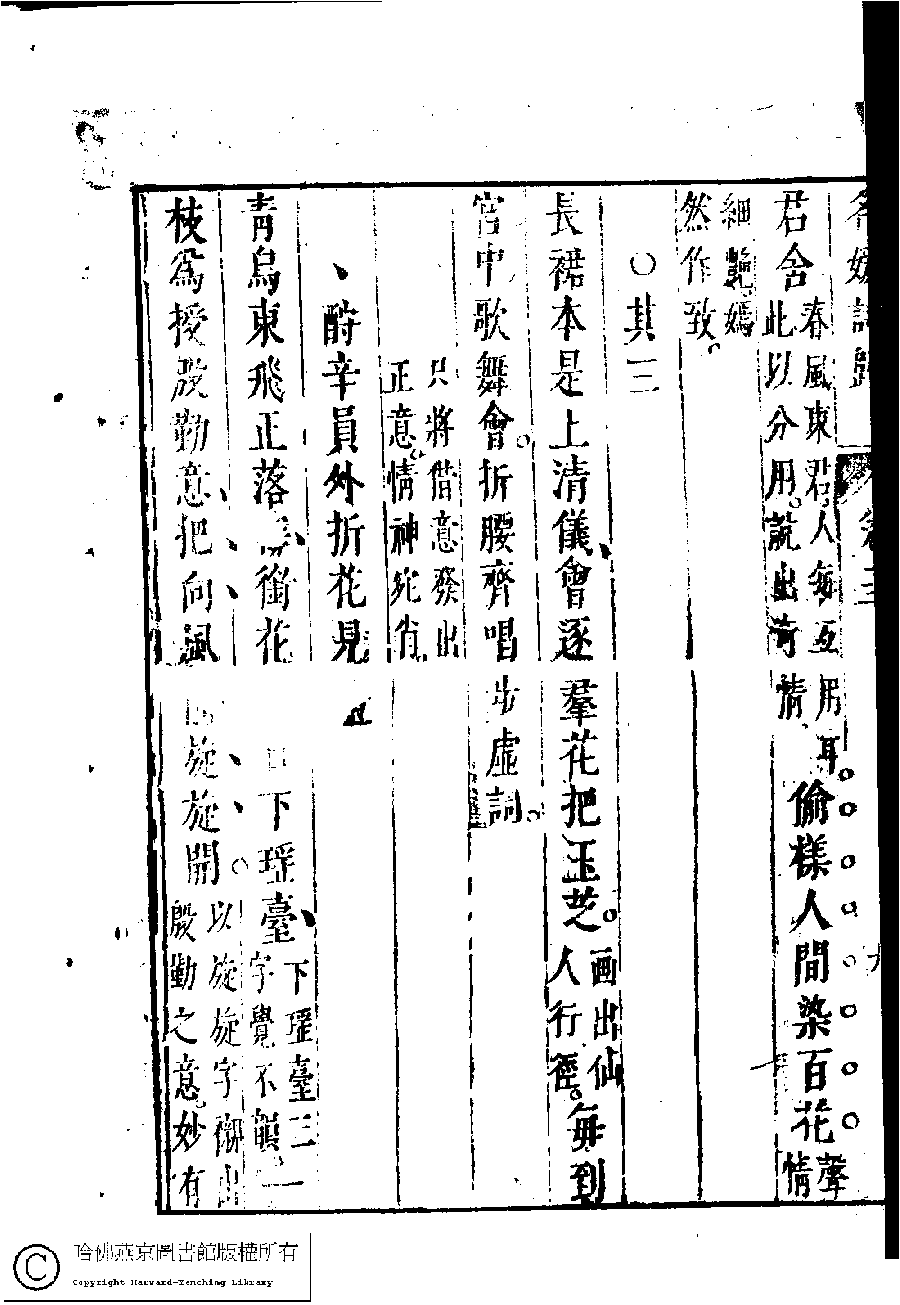 名媛詩歸
君舍春風東君人每互用耳
此以分用說出奇情
偷樣人間染百花聲
情
細艷嫣
然作致
○其三
長裙本是上清儀會逐羣花把玉芝画出仙
人行徑
每到
宮中歌舞會折腰齊唱步虛詞
只將借意發出
正意情神宛肖
酧辛員外折花見
青鳥東飛正落銜花口下瑤臺下瑤臺三
字覺不韻一
枝為授殷勤意把向風旋旋開以旋旋字出
殷勤之意妙有
哈佛燕京圖書館版權所有
Copyright Harvard-Yenching Library